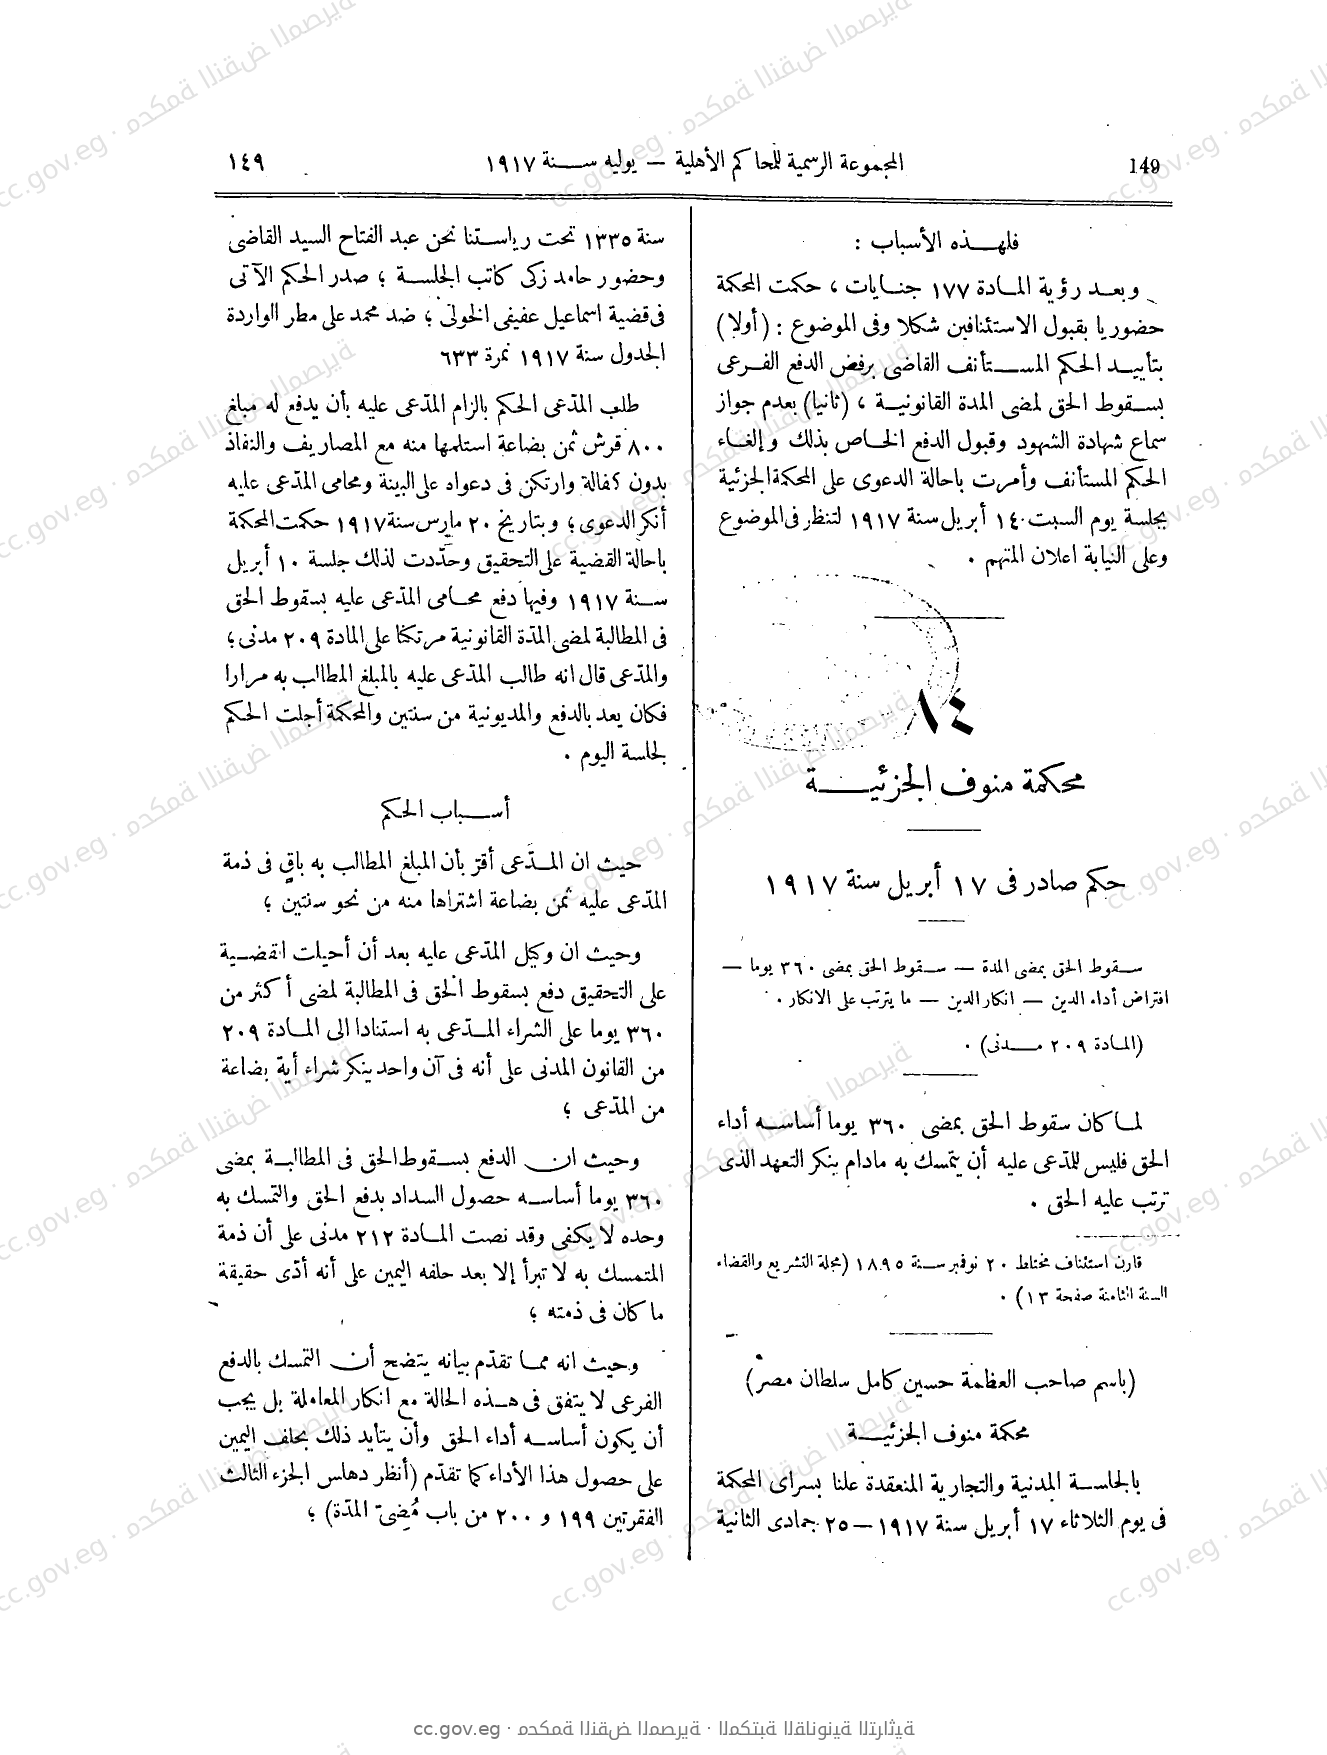 149
المجموعة الرسمية للمحاكم الأهلية — يوليه سنة ١٩١٧
١٤٩
فلهذه الأسباب :
وبعد رؤية المادة ١٧٧ جنايات ، حكمت المحكمة
حضوريا بقبول الاستئنافين شكلا وفى الموضوع : (أولا)
بتأييد الحكم المستأنف القاضى برفض الدفع الفرعى
بسقوط الحق لمضى المدة القانونية ، (ثانيا) بعدم جواز
سماع شهادة الشهود وقبول الدفع الخاص بذلك وإلغاء
الحكم المستأنف وأمرت باحالة الدعوى على المحكمة الجزئية
بجلسة يوم السبت ١٤ أبريل سنة ١٩١٧ لتنظر فى الموضوع
وعلى النيابة اعلان المتهم .
١٤
محكمة منوف الجزئية
حكم صادر فى ١٧ أبريل سنة ١٩١٧
سقوط الحق بمضى المدة — سقوط الحق بمضى ٣٦٠ يوما —
افتراض أداء الدين — انكار الدين — ما يترتب على الانكار .
(المادة ٢٠٩ مدنى) .
لما كان سقوط الحق بمضى ٣٦٠ يوما أساسه أداء
الحق فليس للمدّعى عليه أن يتمسك به مادام ينكر التعهد الذى
ترتب عليه الحق .
قارن استئناف مختلط ٢٠ نوفمبر سنة ١٨٩٥ (مجلة التشريع والقضاء
السنة الثامنة صفحة ١٣) .
(باسم صاحب العظمة حسين كامل سلطان مصر)
محكمة منوف الجزئية
بالجلسة المدنية والتجارية المنعقدة علنا بسراى المحكمة
فى يوم الثلاثاء ١٧ أبريل سنة ١٩١٧ — ٢٥ جمادى الثانية
سنة ١٣٣٥ تحت رياستنا نحن عبد الفتاح السيد القاضى
وحضور حامد زكى كاتب الجلسة ؛ صدر الحكم الآتى
فى قضية اسماعيل عفيفى الخولى ؛ ضد محمد على مطر الواردة
الجدول سنة ١٩١٧ نمرة ٦٣٣
طلب المدّعى الحكم بالزام المدّعى عليه بأن يدفع له مبلغ
٨٠٠ قرش ثمن بضاعة استلمها منه مع المصاريف والنفاذ
بدون كفالة وارتكن فى دعواه على البينة ومحامى المدّعى عليه
أنكر الدعوى ؛ وبتاريخ ٢٠ مارس سنة ١٩١٧ حكمت المحكمة
باحالة القضية على التحقيق وحدّدت لذلك جلسة ١٠ أبريل
سنة ١٩١٧ وفيها دفع محامى المدّعى عليه بسقوط الحق
فى المطالبة لمضى المدّة القانونية مرتكنا على المادة ٢٠٩ مدنى ؛
والمدّعى قال انه طالب المدّعى عليه بالمبلغ المطالب به مرارا
فكان يعد بالدفع والمديونية من سنتين والمحكمة أجلت الحكم
لجلسة اليوم .
أسباب الحكم
حيث ان المدّعى أقرّ بأن المبلغ المطالب به باقٍ فى ذمة
المدّعى عليه ثمن بضاعة اشتراها منه من نحو سنتين ؛
وحيث ان وكيل المدّعى عليه بعد أن أحيلت القضية
على التحقيق دفع بسقوط الحق فى المطالبة لمضى أكثر من
٣٦٠ يوما على الشراء المدّعى به استنادا الى المادة ٢٠٩
من القانون المدنى على أنه فى آن واحد ينكر شراء أية بضاعة
من المدّعى ؛
وحيث ان الدفع بسقوط الحق فى المطالبة بمضى
٣٦٠ يوما أساسه حصول السداد بدفع الحق والتمسك به
وحده لا يكفى وقد نصت المادة ٢١٢ مدنى على أن ذمة
المتمسك به لا تبرأ إلا بعد حلفه اليمين على أنه أدّى حقيقة
ما كان فى ذمته ؛
وحيث انه مما تقدّم بيانه يتضح أن التمسك بالدفع
الفرعى لا يتفق فى هذه الحالة مع انكار المعاملة بل يجب
أن يكون أساسه أداء الحق وأن يتأيد ذلك بحلف اليمين
على حصول هذا الأداء كما تقدّم (أنظر دهلس الجزء الثالث
الفقرتين ١٩٩ و ٢٠٠ من باب مُضِىّ المدّة) ؛
cc.gov.eg · محكمة النقض المصرية · المكتبة القانونية التراثية